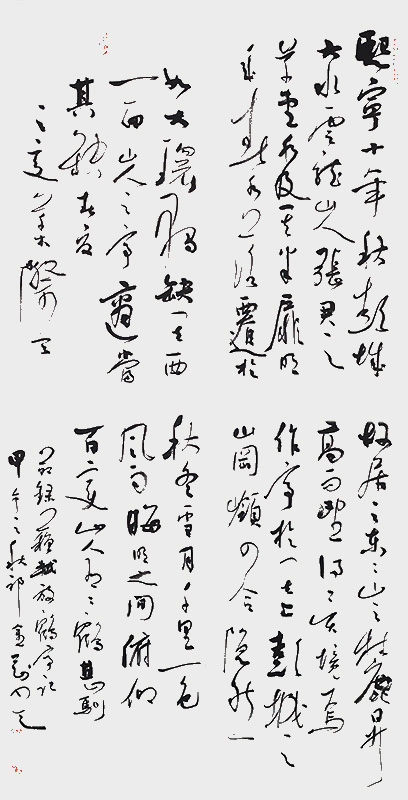 熙寧十年秋彭城
大水雲龍山人張君之
草堂水及其半扉明
年春水落遷於
故居之東東山之麓昇
高而望得異境焉
作亭於其上彭城之
山岡嶺四合隱然
如大環獨缺其西
一面山人之亭適當
其缺春夏
之交草木際天
秋冬雪月千里一色
風雨晦明之間俯仰
百變山人有二鶴甚馴
節錄蘇軾放鶴亭記
甲午之秋